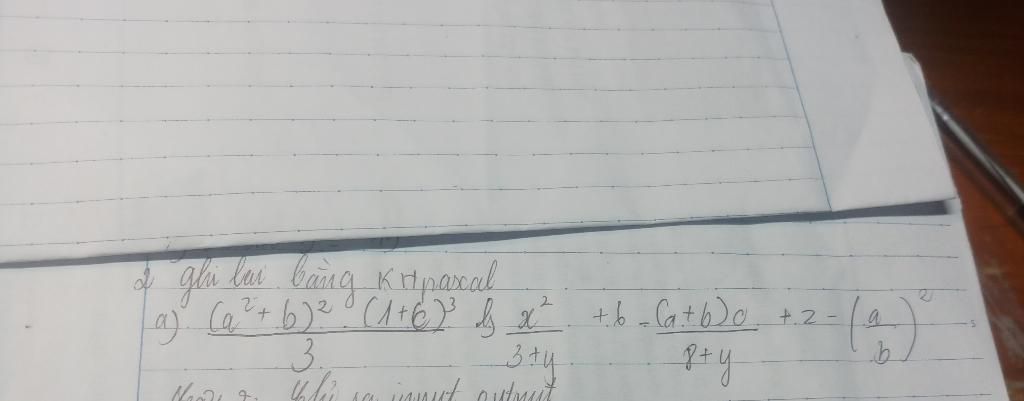 2 ghi lại bằng KH pascal
a) (a² + b)² . (1+c)³ / 3 b) x² / 3+y + b - (a+b)c / 8+y + 2 - (a / b)²
ghi ra input output